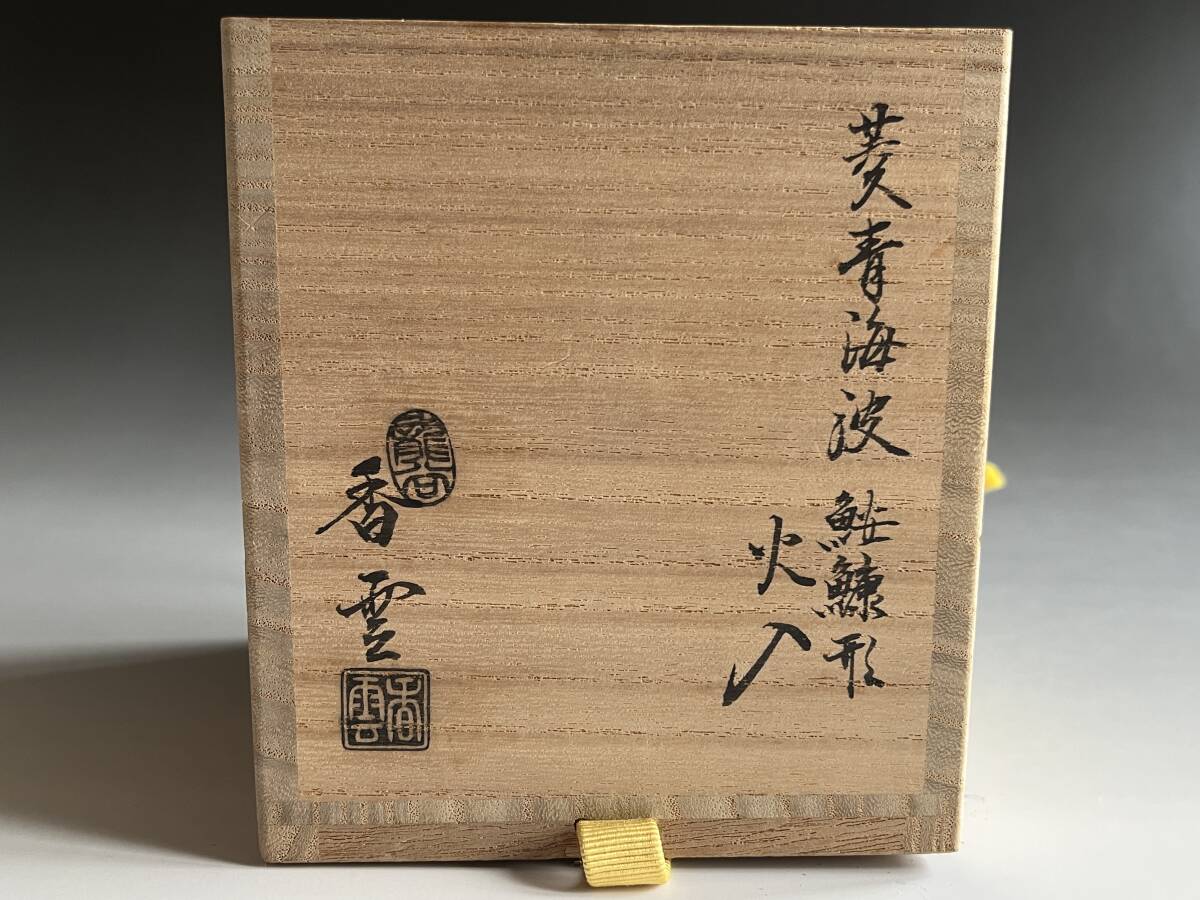 菱青海波 鮟鱇形
火入
龍谷
香雲
香雲